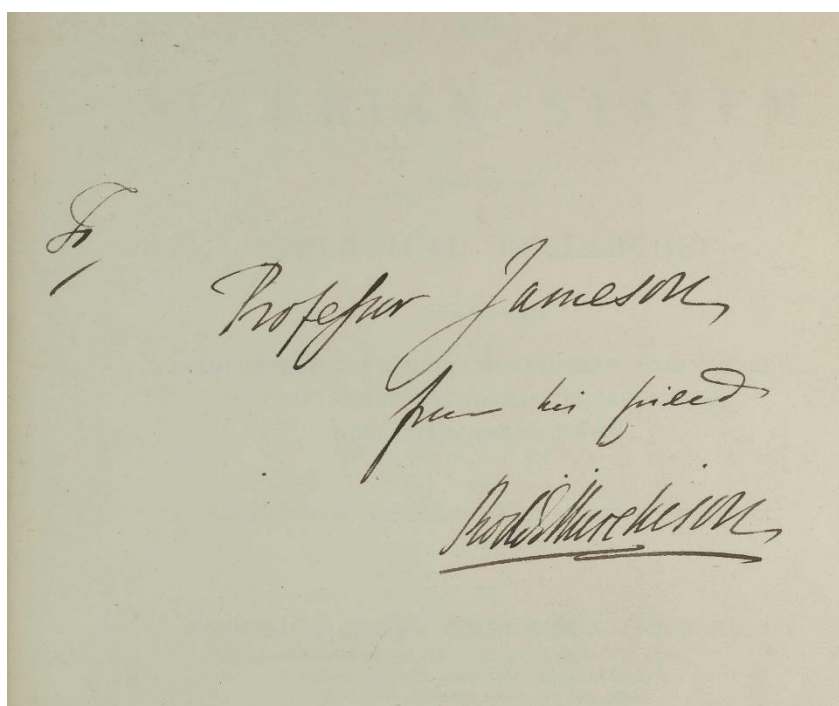 To,
Professor Jameson
from his friend
Rod. I. Murchison